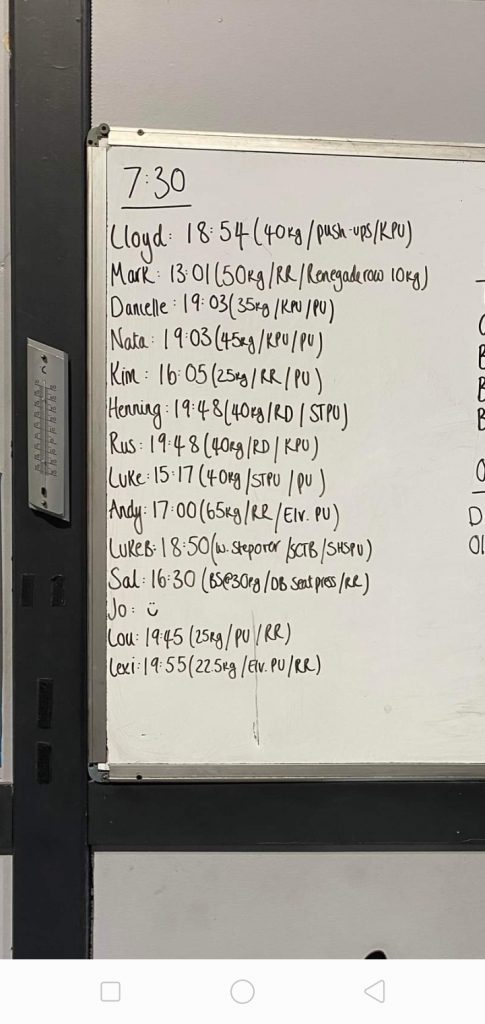 7:30
Lloyd: 18:54 (40kg/push-ups/KPU)
Mark: 13:01 (50kg/RR/Renegade row 10kg)
Danielle: 19:03 (35kg/KPU/PU)
Nata: 19:03 (45kg/KPU/PU)
Kim: 16:05 (25kg/RR/PU)
Henning: 19:48 (40kg/RD/STPU)
Rus: 19:48 (40kg/RD/KPU)
Luke: 15:17 (40kg/STPU/PU)
Andy: 17:00 (65kg/RR/Elv. PU)
Luke B: 18:50 (W. Stepover/SCTB/SHSPU)
Sal: 16:30 (BS@30kg/DB Seat press/RR)
Jo: ☺
Lou: 19:45 (25kg/PU/RR)
Lexi: 19:55 (22.5kg/Elv. PU/RR)